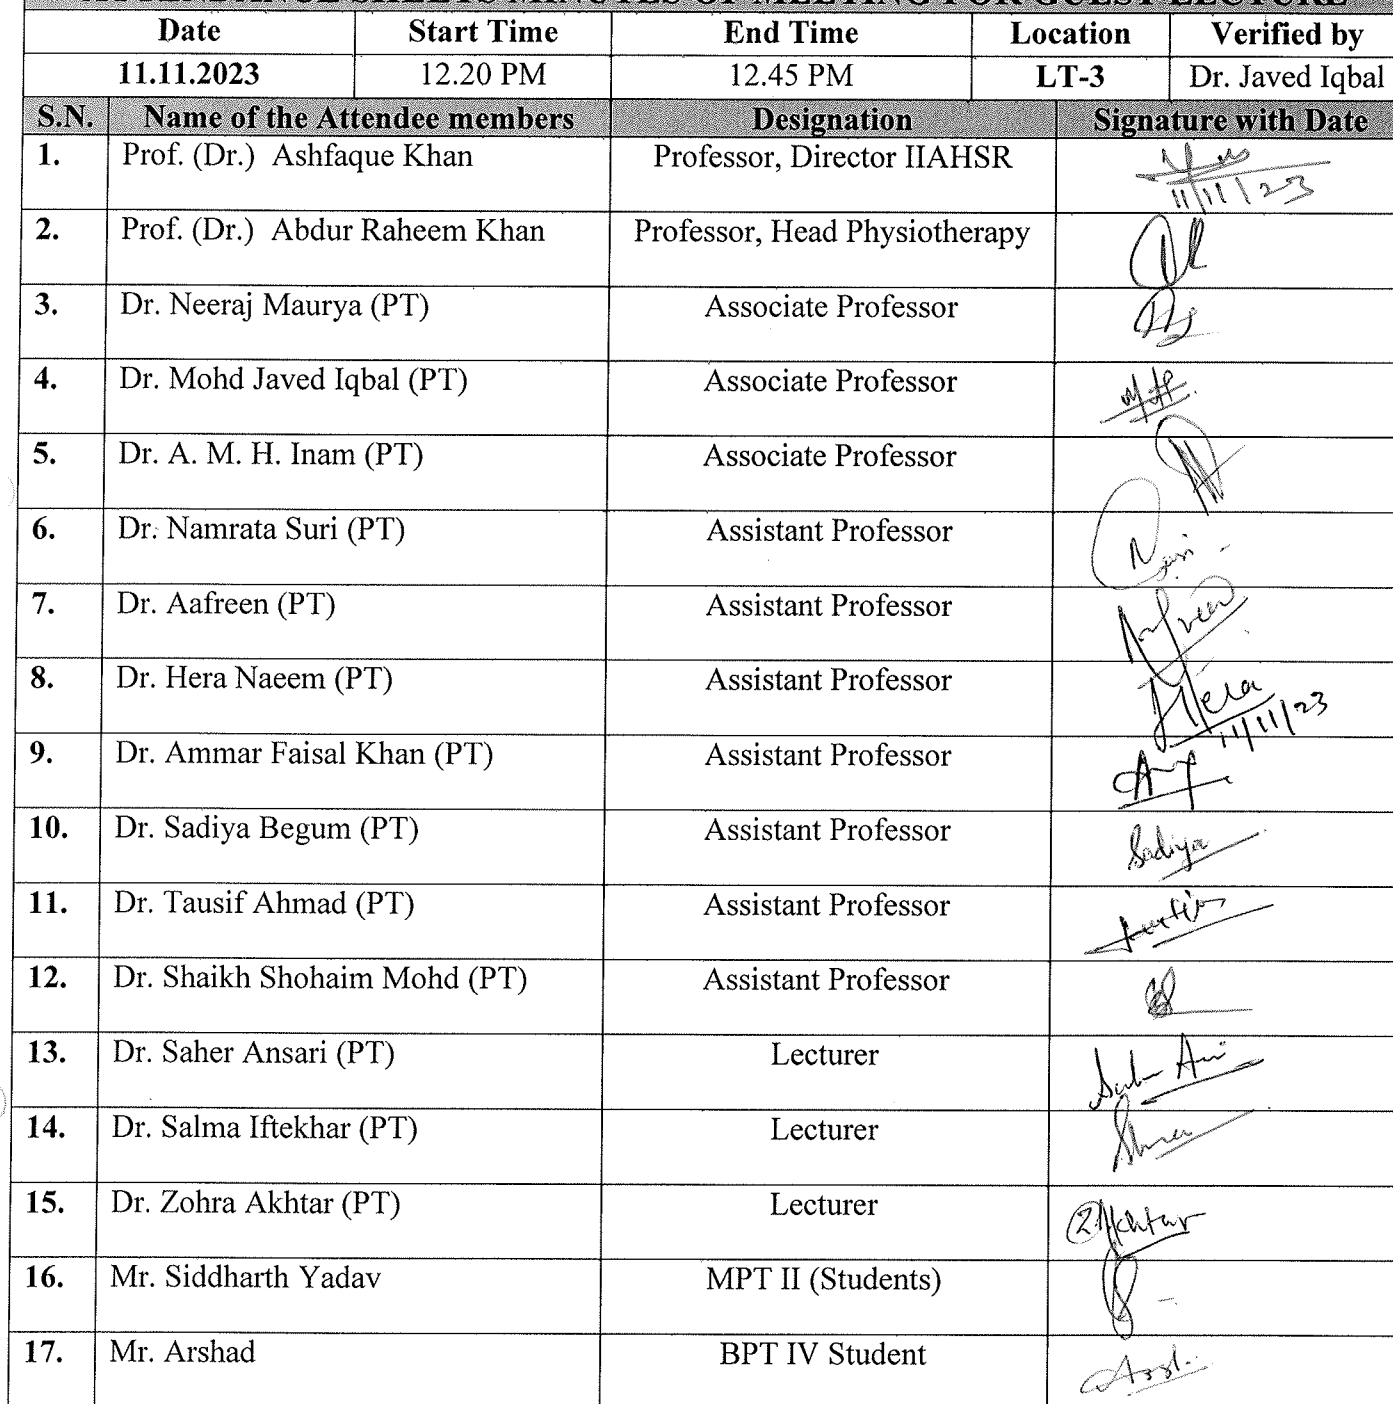 ATTENDANCE SHEETS MINUTES OF MEETING FOR GUEST LECTURE
Date Start Time End Time Location Verified by
11.11.2023 12.20 PM 12.45 PM LT-3 Dr. Javed Iqbal
S.N. Name of the Attendee members Designation Signature with Date
1. Prof. (Dr.) Ashfaque Khan Professor, Director IIAHSR
11/11/23
2. Prof. (Dr.) Abdur Raheem Khan Professor, Head Physiotherapy
3. Dr. Neeraj Maurya (PT) Associate Professor
4. Dr. Mohd Javed Iqbal (PT) Associate Professor
5. Dr. A. M. H. Inam (PT) Associate Professor
6. Dr. Namrata Suri (PT) Assistant Professor
7. Dr. Aafreen (PT) Assistant Professor Aafreen
8. Dr. Hera Naeem (PT) Assistant Professor Hera
11/11/23
9. Dr. Ammar Faisal Khan (PT) Assistant Professor
10. Dr. Sadiya Begum (PT) Assistant Professor Sadiya
11. Dr. Tausif Ahmad (PT) Assistant Professor
12. Dr. Shaikh Shohaim Mohd (PT) Assistant Professor
13. Dr. Saher Ansari (PT) Lecturer
14. Dr. Salma Iftekhar (PT) Lecturer
15. Dr. Zohra Akhtar (PT) Lecturer ZAkhtar
16. Mr. Siddharth Yadav MPT II (Students)
17. Mr. Arshad BPT IV Student